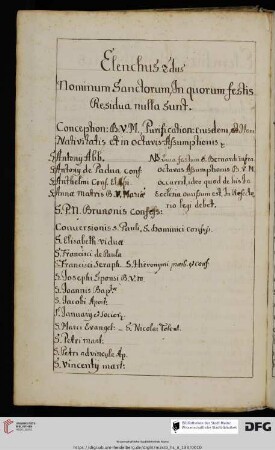 Elenchus 2dus
Nominum Sanctorum, In quorum festis
Residua nulla sunt.
Conception: B.V.M. Purification: eiusdem,
Nativitatis et in octavis Assumptionis
S. Antony Abb.
S. Antony de Padua conf
S. Anthelmi Conf. et
S. Anna Matris B.V. Mariæ
NB. festum S. Bernardi infra
octavas Assumptionis B.V.M
occurrit, ideo quod de his in
Ecclesia omissum est In Refecto
rio legi debet.
S.P.N. Brunonis Confess:
Conversionis S. Pauli, S. Dominici confess.
S. Elisabeth vidua
S. Francisci de Paula
S. Francisci Seraph. S. Hieronymi presb. et conf
S. Josephi Sponsi B.V.M
S. Joannis Baptæ
S. Jacobi Apost.
S. January et Socior.
S. Marci Evangel. - S. Nicolai Tolent.
S. Petri mart.
S. Petri ad vincula Ap.
S. Vincenty mart.
DFG